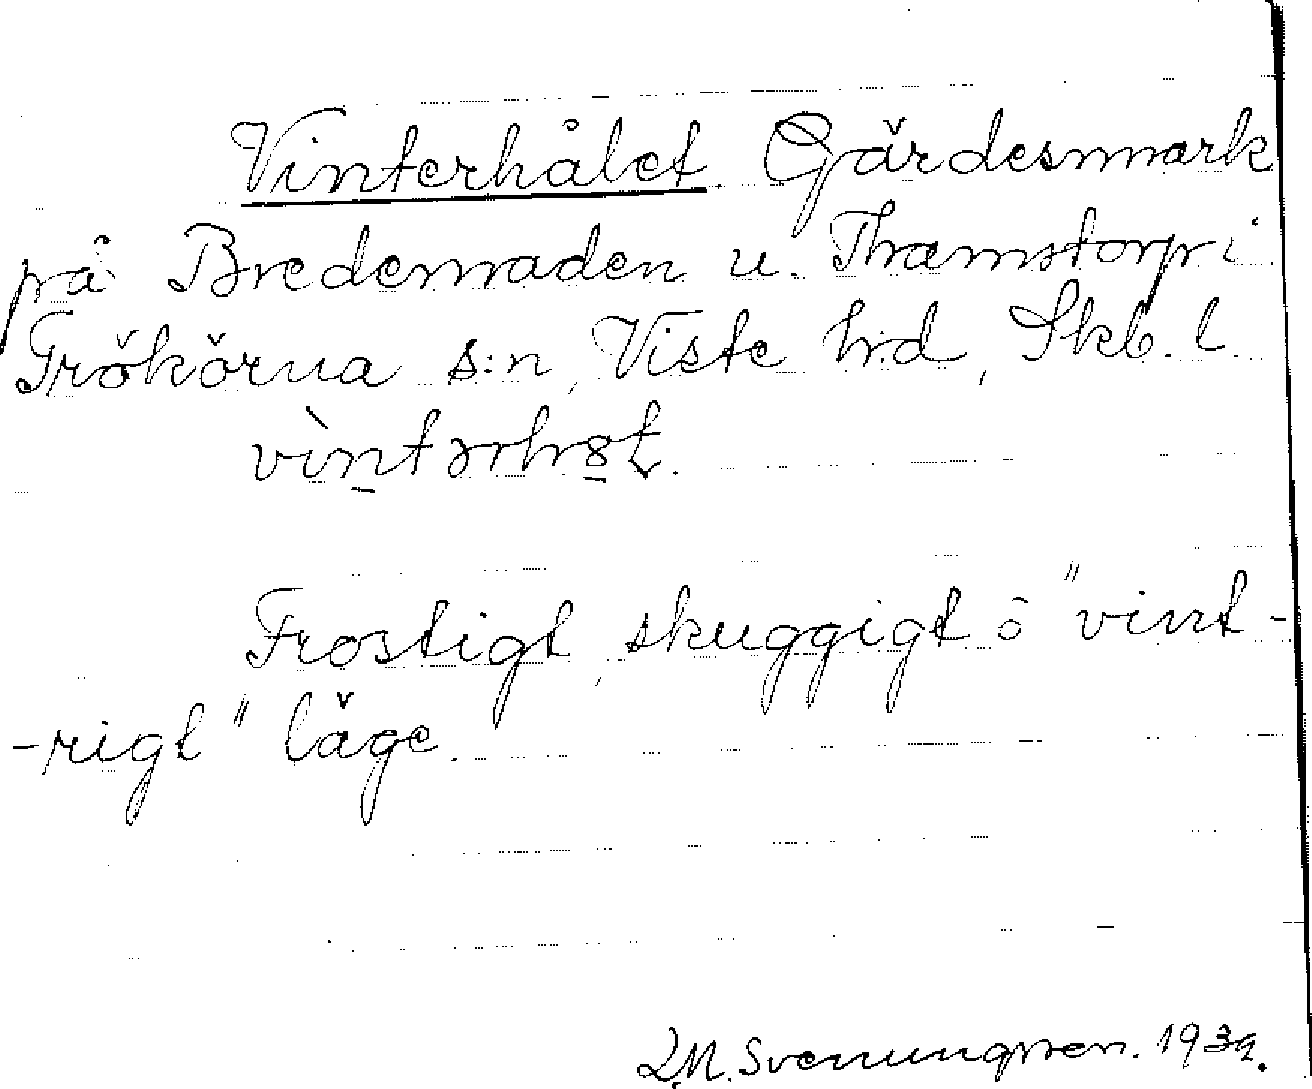 Vinterhålet Gärdesmark
på Bredemaden u. Thamstorp i
Frökärna s:n, Viste hd, Skb. l
Frostigt, skuggigt o "vint-
-rigt" läge.
Svenungsson. 193